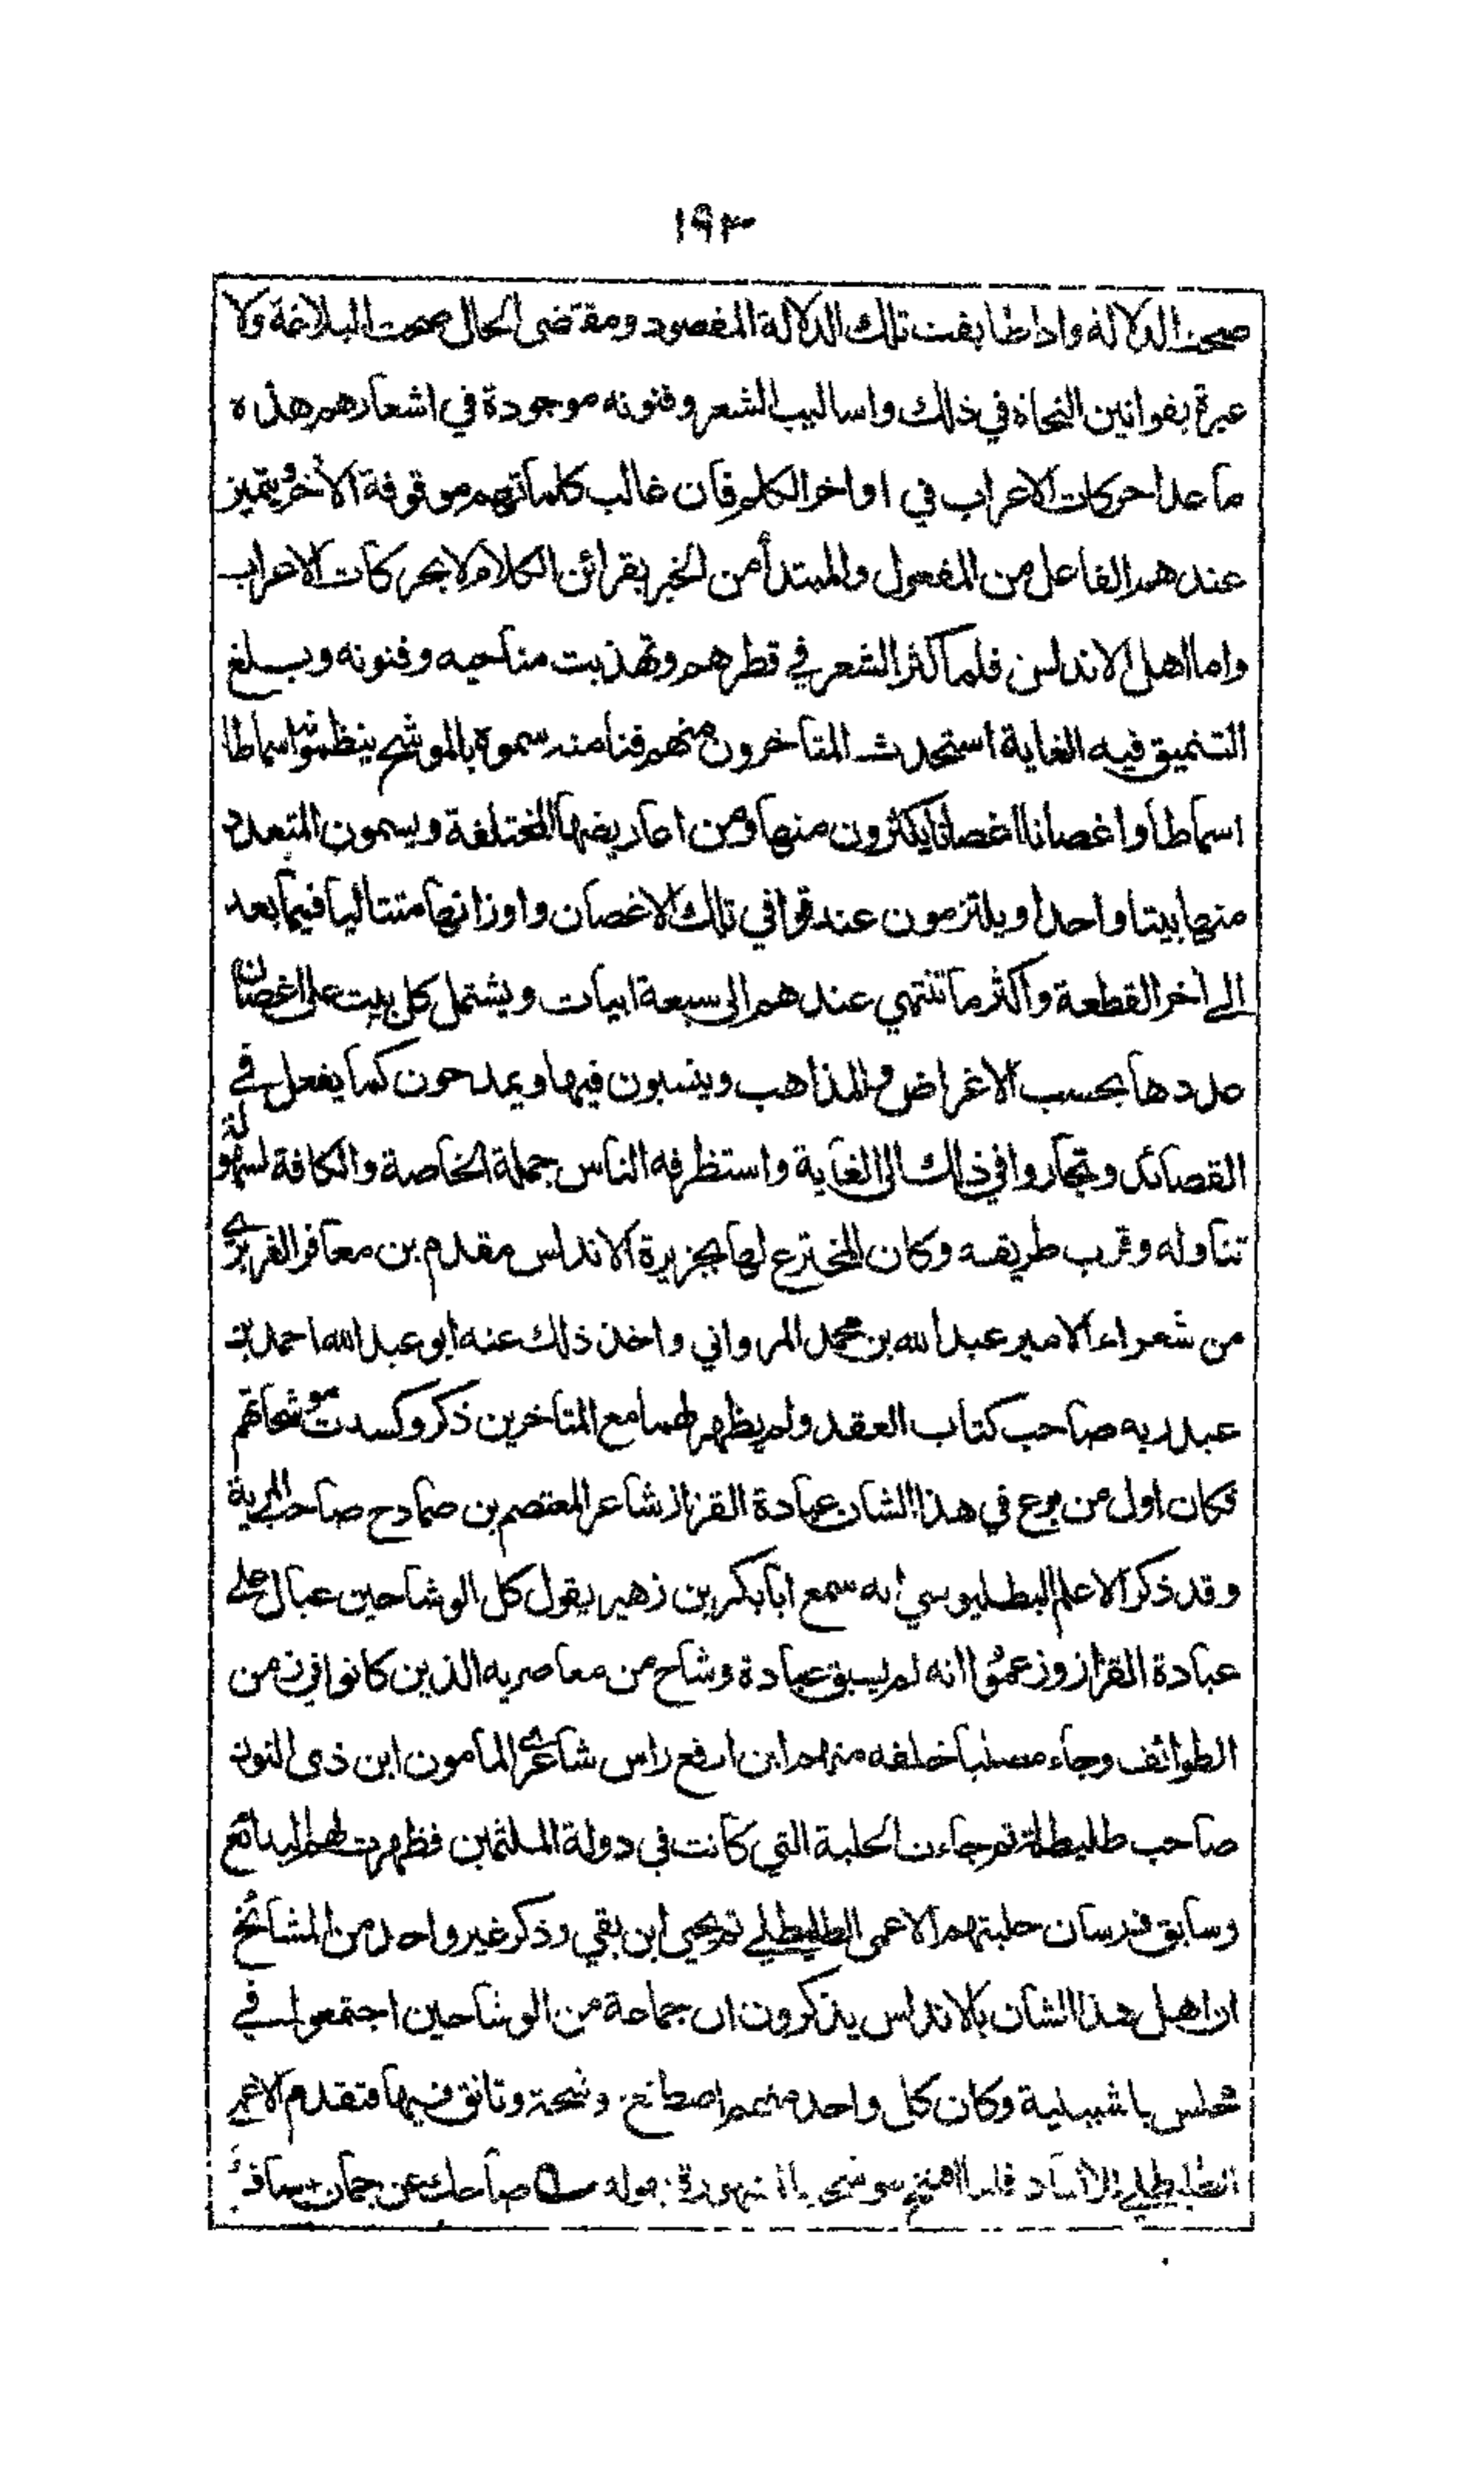 ١٩٣
صحت الدلالة واذا طابقت تلك الدلالة المقصود ومقتضى الحال صحت البلاغة ولا
عبرة بقوانين النحاة في ذلك واساليب الشعر وفنونه موجودة في اشعارهم هذه
ما عدا حركات الاعراب في اواخر الكلم فان غالب كلماتهم موقوفة الآخر ويتميز
عندهم الفاعل من المفعول والمبتدأ من الخبر بقرائن الكلام لا بحركات الاعراب
واما اهل الاندلس فلما كثر الشعر في قطرهم وتهذبت مناحيه وفنونه وبلغ
التنميق فيه الغاية استحدث المتاخرون منهم فنا منه سموه بالموشح ينظمونه اسماطا
اسماطا واغصانا اغصانا يكثرون منها ومن اعاريضها المختلفة ويسمون المتعدد
منها بيتا واحدا ويلتزمون عند قوافي تلك الاغصان واوزانها متتاليا فيما بعد
الى آخر القطعة واكثر ما تنتهي عندهم الى سبعة ابيات ويشتمل كل بيت على اغصان
عددها بحسب الاغراض والمذاهب وينسبون فيها ويمدحون كما يفعل في
القصائد وتجاروا في ذلك الى الغاية واستظرفه الناس جملة الخاصة والكافة لسهولة
تناوله وقرب طريقه وكان المخترع لها بجزيرة الاندلس مقدم بن معافر الفريري
من شعراء الامير عبد الله بن محمد المرواني واخذ ذلك عنه ابو عبد الله احمد بن
عبد ربه صاحب كتاب العقد ولم يظهر لهما مع المتاخرين ذكر وكسدت موشحاتهم
فكان اول من برع في هذا الشان عبادة القزاز شاعر المعتصم بن صمادح صاحب المرية
وقد ذكر الاعلم البطليوسي انه سمع ابا بكر بن زهير يقول كل الوشاحين عيال على
عبادة القزاز وزعموا انه لم يسبق عبادة وشاح من معاصريه الذين كانوا في زمن
الطوائف وجاء مصليا خلفه منهم ابن ارفع راس شاعر المامون ابن ذي النون
صاحب طليطلة ثم جاءت الحلبة التي كانت في دولة الملثمين فظهرت لهم البدائع
وسابق فرسان حلبتهم الاعمى الطليطلي ثم يحيى ابن بقي وذكر غير واحد من المشائخ
ان اهل هذا الشان بالاندلس يذكرون ان جماعة من الوشاحين اجتمعوا في
مجلس باشبيلية وكان كل واحد منهم اصطنع موشحة وتانق فيها فتقدم الاعمى
الطليطلي للانشاد فلما افتتح موشحته المشهورة بقوله ضاحك عن جمان سافر